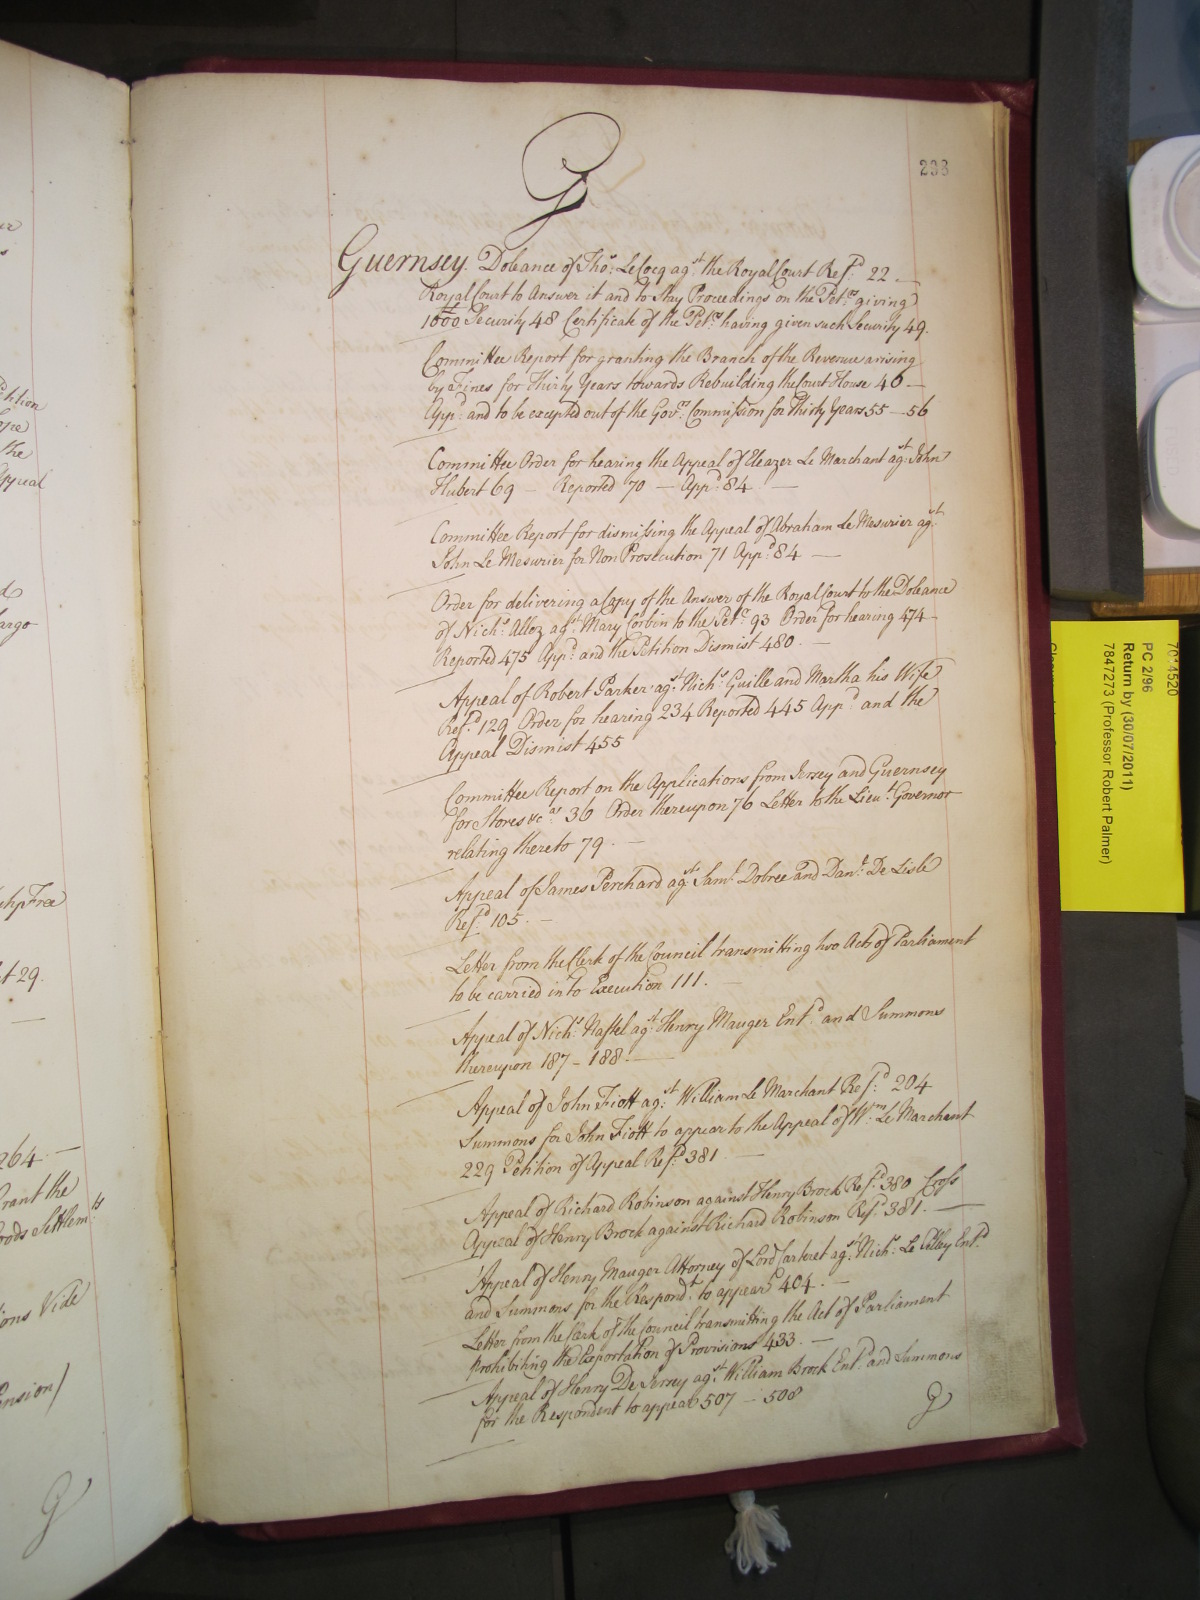 G
233
Guernsey. Doleance of Tho.s LeCocq ag.st the Royal Court Ref.d 22.
Royal Court to Answer it and to Stay Proceedings on the Pet.rs giving
1000 Security 48 Certificate of the Pet.rs having given such Security 49.
Committee Report for granting the Branch of the Revenue arising
by Fines for Thirty Years towards Rebuilding the Court House 46 —
App.d and to be excepted out of the Gov.rs Commission for Thirty Years 55 — 56
Committee Order for hearing the Appeal of Eleazer Le Marchant ag.st John
Hubert 69 — Reported 70 — App.d 84 —
Committee Report for dismissing the Appeal of Abraham Le Mesurier ag.st
John Le Mesurier for Non Prosecution 71 App.d 84 —
Order for delivering a Copy of the Answer of the Royal Court to the Doleance
of Nich.s Allez ag.st Mary Corbin to the Pet.r 93 Order for hearing 474
Reported 475 App.d and the Petition Dismist 480. —
Appeal of Robert Parker ag.st Nich.s Guille and Martha his Wife
Ref.d 129 Order for hearing 234 Reported 445 App.d and the
Appeal Dismist 455
Committee Report on the Applications from Jersey and Guernsey
for Stores &c.as 36 Order thereupon 76 Letter to the Lieu.t Governor
relating thereto 79. —
Appeal of James Perchard ag.st Sam.l Dobree and Dan.l De Lisle
Ref.d 105. —
Letter from the Clerk of the Council transmitting two Acts of Parliament
to be carried into Execution 111. —
Appeal of Nich.s Naftel ag.st Henry Mauger Ent.d and Summons
thereupon 187 — 188 —
Appeal of John Fiott ag.st William Le Marchant Ref.d 204
Summons for John Fiott to appear to the Appeal of W.m Le Marchant
229 Petition of Appeal Ref.d 381. —
Appeal of Richard Robinson against Henry Brock Ref.d 380 Cross
Appeal of Henry Brock against Richard Robinson Ref.d 381. —
Appeal of Henry Mauger Attorney of Lord Carteret ag.st Nich.s Le Pelley Ent.d
and Summons for the Respond.t to appear 404. —
Letter from the Clerk of the Council transmitting the Act of Parliament
Prohibiting the Exportation of Provisions 433. —
Appeal of Henry De Jersey ag.st William Brock Ent.d and Summons
for the Respondent to appear 507 — 508
G
the
Appeal
argo
Ship Free
29.
264 —
Grant the
Settlem.ts
Vide
G
PC 2/96
Return by (30/07/2011)
7847273 (Professor Robert Palmer)